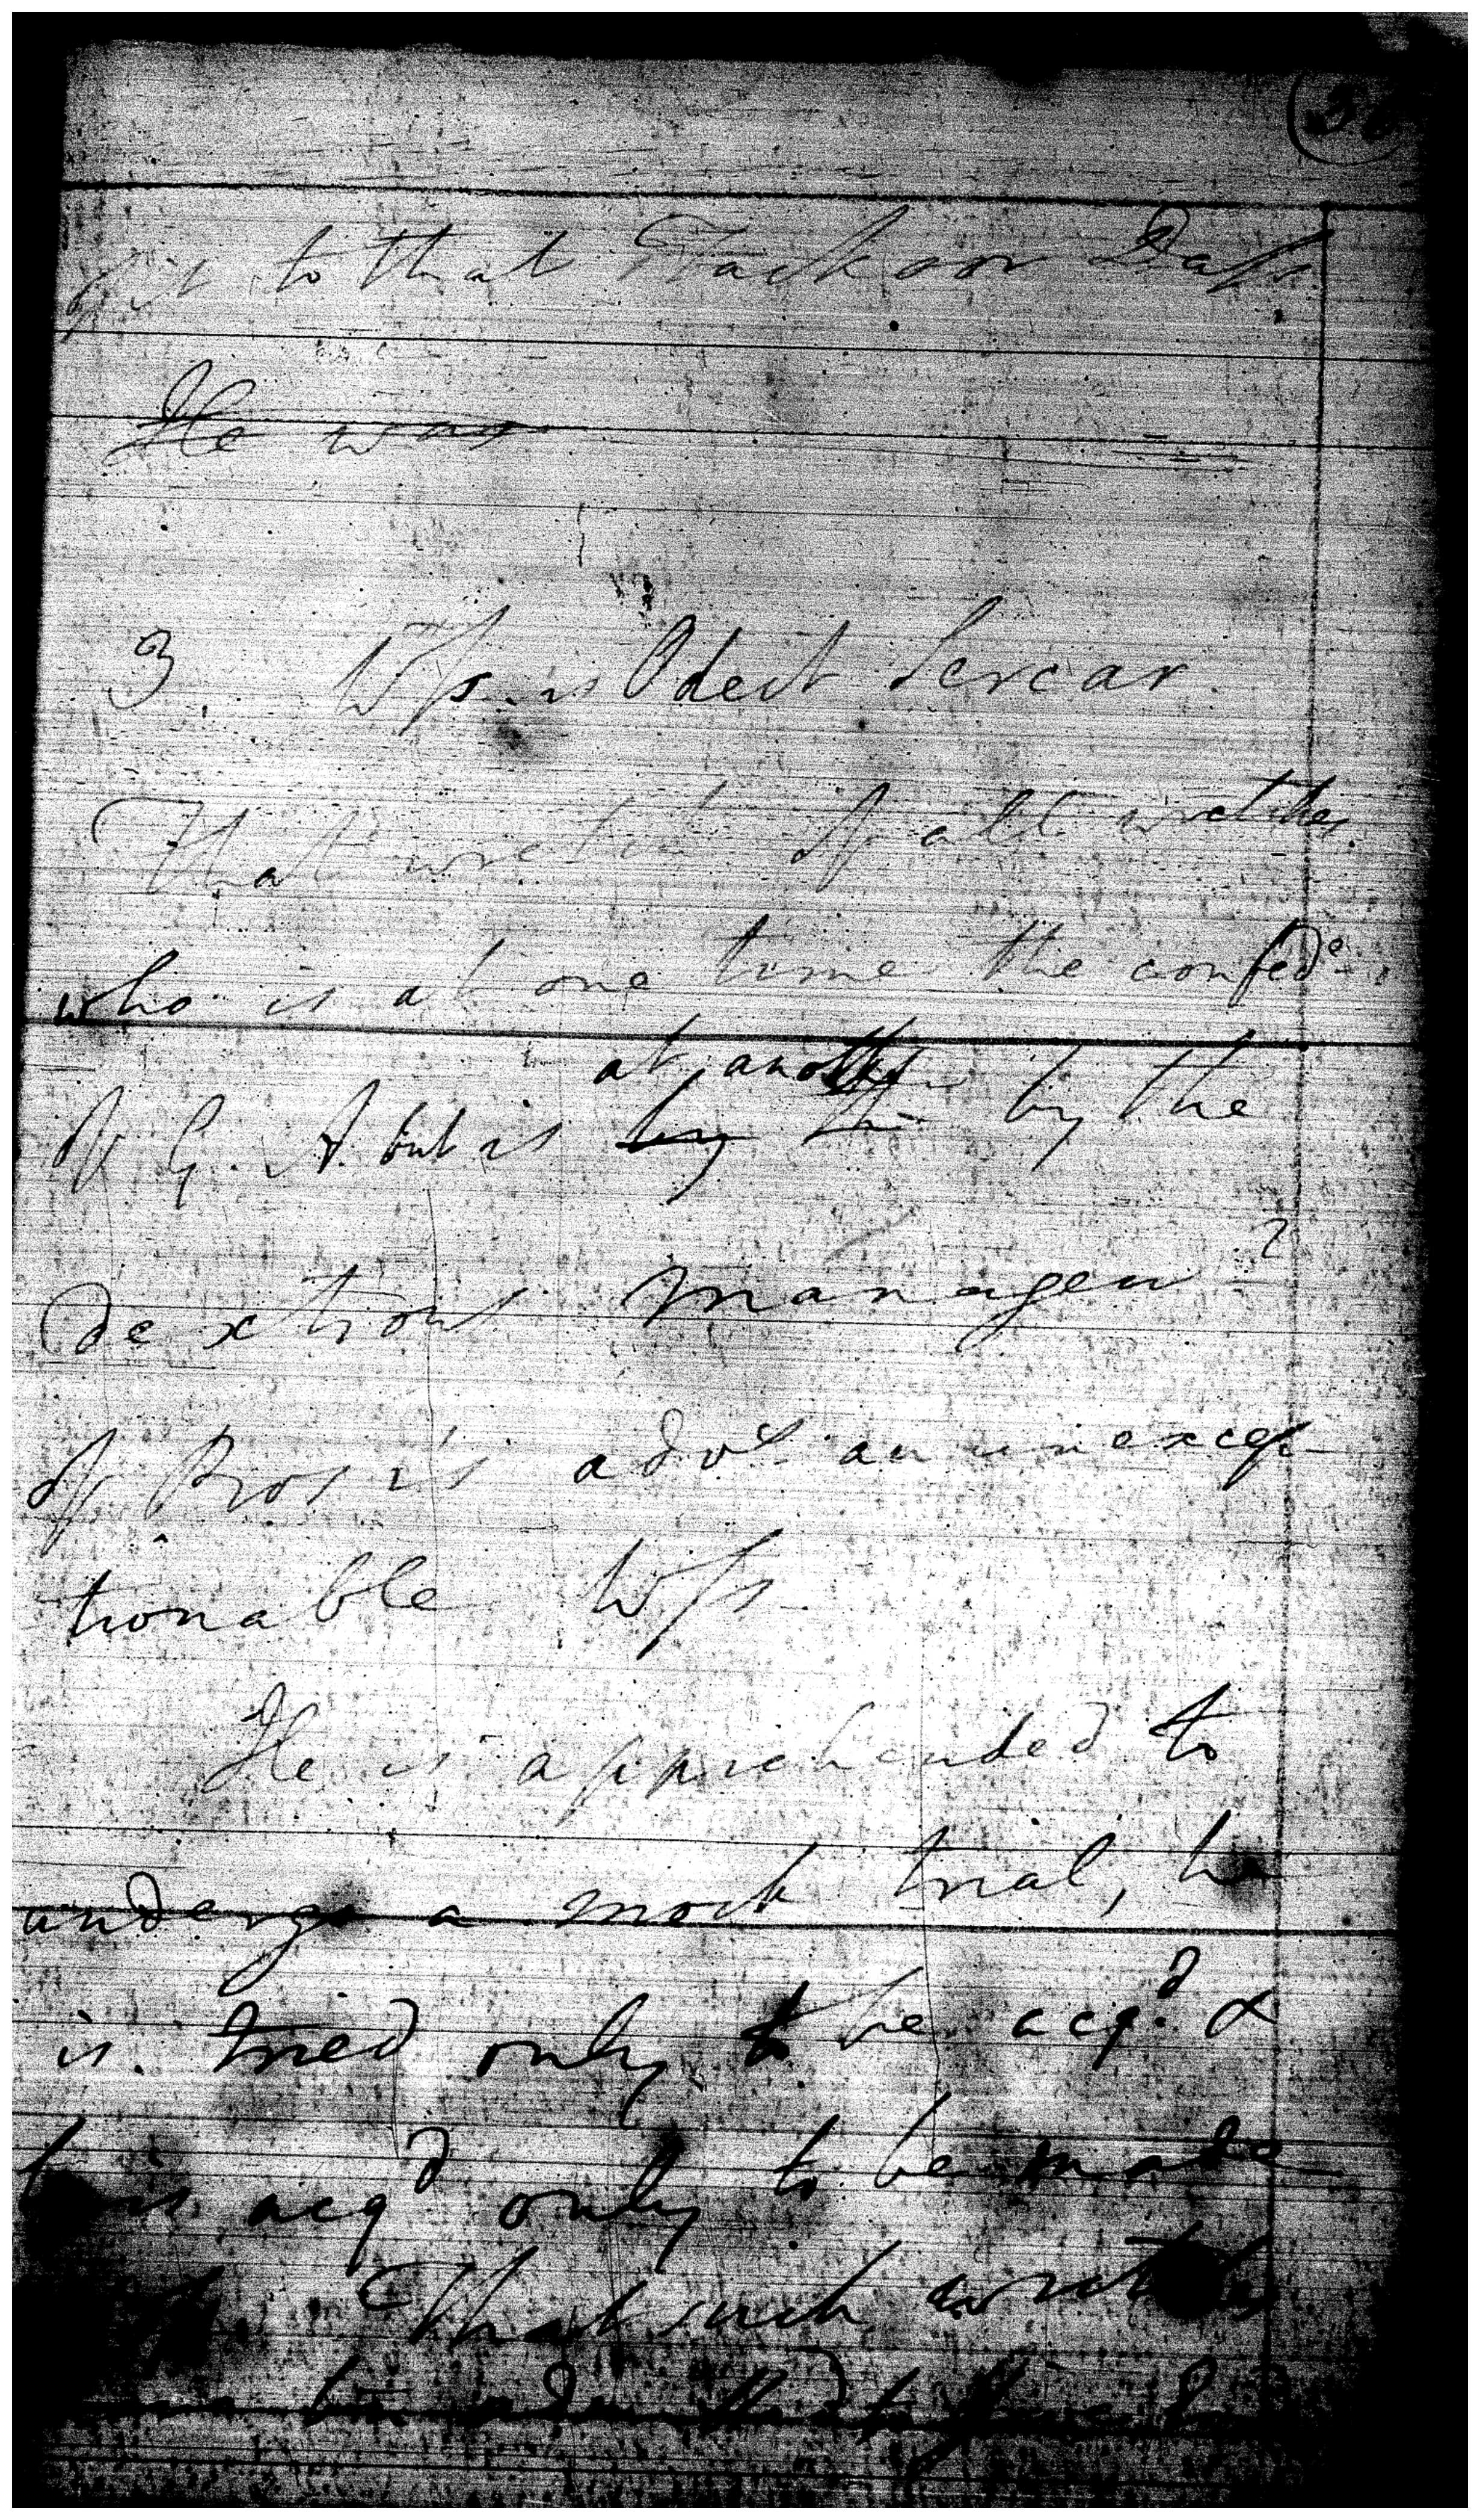 to that Tackoor Dass
He was
3. Wss is Odeit Sercar.
That wretch of all wretches
who is at one time the confed.e
at another
of G. A. but is by the by the
dextrous managem.t
of Pros.rs adv.e an unexcep-
tionable Wss.
He is apprehended to
undergo a mock trial, he
is tried only to be acq.d &
is acq.d only to be made
That such wretches